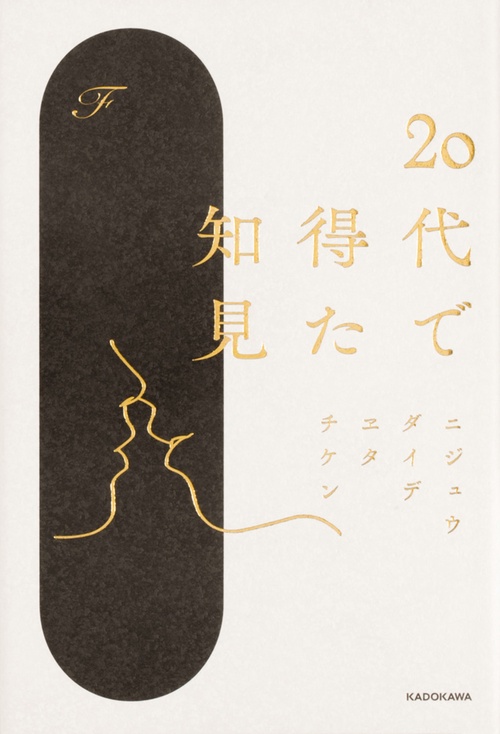 F
20代で
得た
知見
ニジュウ
ダイデ
ヱタ
チケン
KADOKAWA